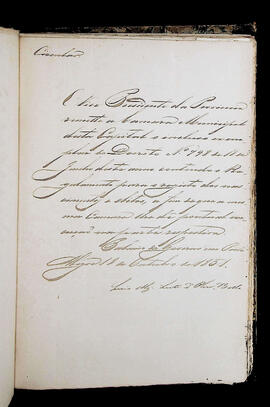 Circular
O Vice Presidente da Provincia
remette a Camara Municipal
desta Capital o incluso exem
plar do Decreto Nº 798 de 18 de
Junho deste anno contendo o Re
gulamento para o registo dos nas
cimentos e obitos, a fim que a mes
ma Camara lhe dê pontual exe
cução na parte respectiva.
Palacio do Governo em Porto
Alegre 18 de Outubro de 1851.
Luis